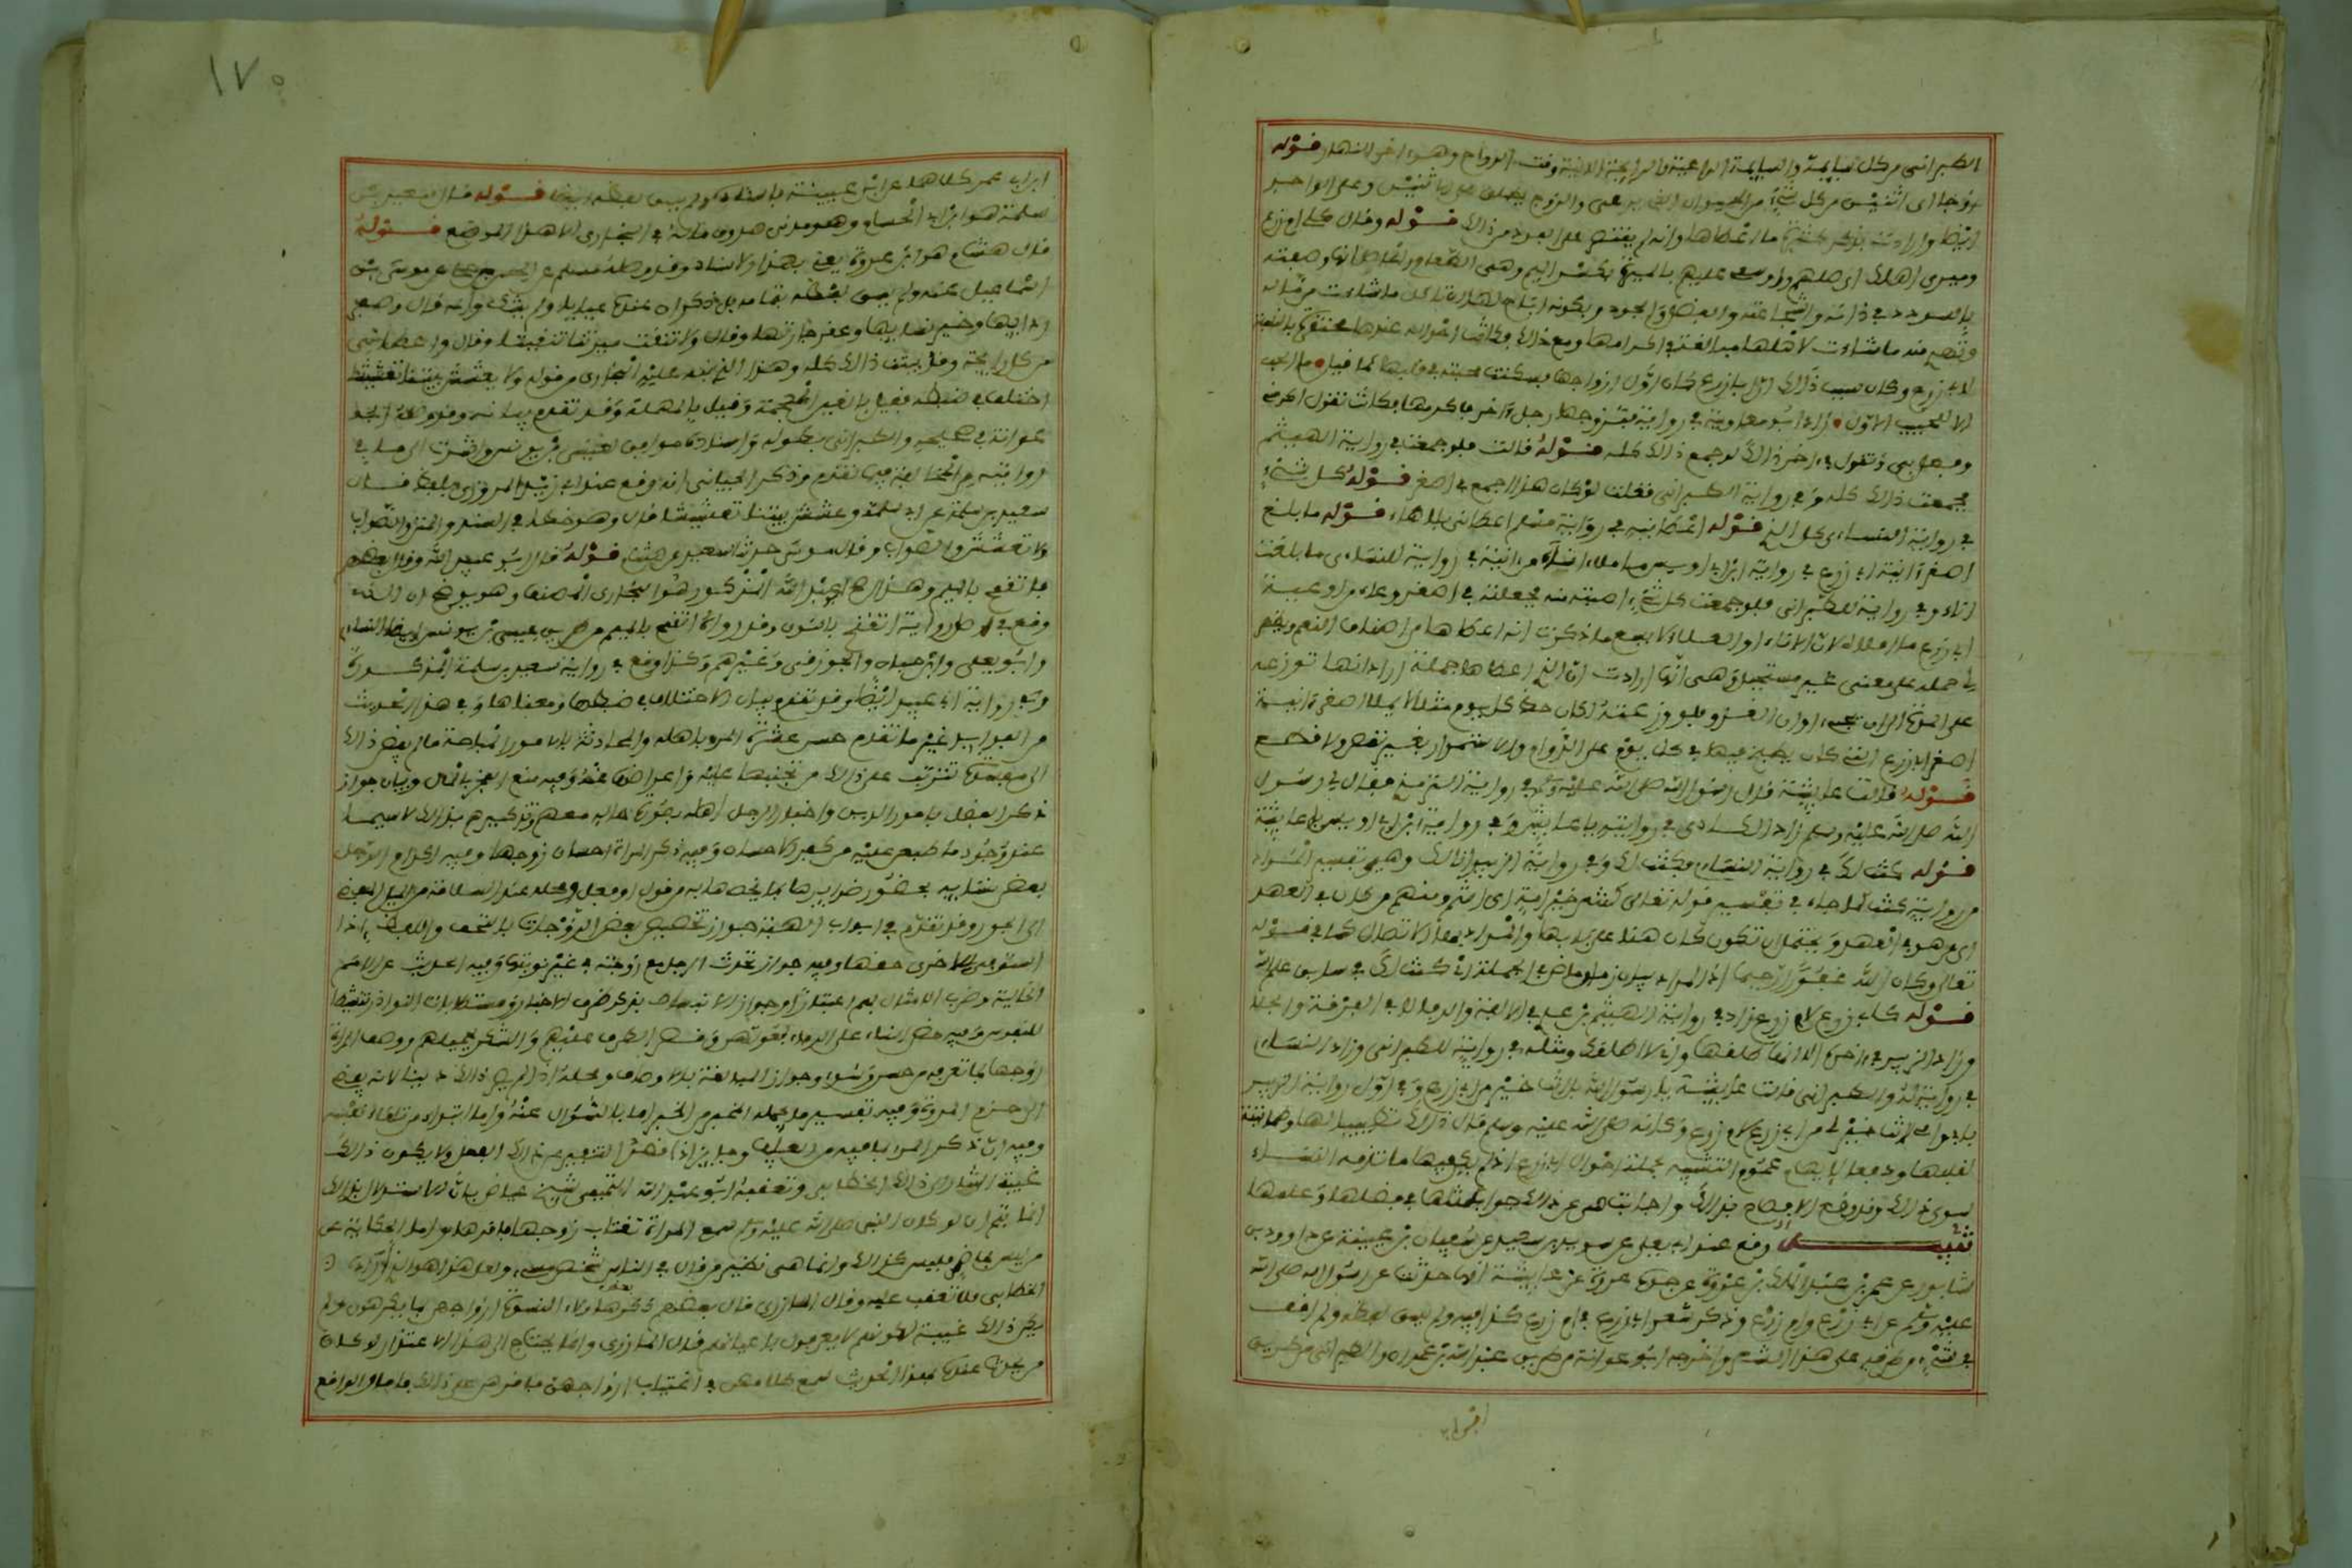 الطبراني من كل سايمة والسايمة الراعية والرايحة الاتية وقت الرواح وهو اخر النهار قوله
زوجا اي اثنين من كل شيء من الحيوان الذي يرعى والزوج يطلق على الاثنين وعلى الواحد
ايضا وارادت بذكر كثرة ما اعطاها وانه لم يقتصر على الفرد من ذلك قوله وقال كلي ام زرع
وميري اهلك اي صليهم واوسعي عليهم بالميرة بكسر الميم وهي الطعام
بالسودد في ذاته والشجاعة والفضل والجود وبكونه اباح لها ان تاكل ما شاءت من ماله
وتهدي منه ما شاءت لاهلها مبالغة في اكرامها ومع ذلك فكانت احواله عندها محتقرة بالنسبة
لابي زرع وكان سبب ذلك ان ابا زرع كان اول ازواجها فسكنت محبته في قلبها كما قيل ما الحب
الا للحبيب الاول زاد ابو معاوية في روايته فتزوجها رجل اخر فاكرمها فكانت تقول اكرمني
وفعل بي وتقول في اخر ذلك لو جمع ذلك كله قوله قالت فلو جمعت في رواية الهيثم
فجمعت ذلك كله وفي رواية الطبراني فقلت لو كان هذا اجمع في اصغر قوله كل شيء
في رواية النسائي كل الذي قوله اعطانيه في رواية مسلم اعطاني بلا هاء قوله ما بلغ
اصغر انية ابي زرع في رواية ابن ابي اويس ما ملا اناء من انية في رواية للنسائي ما بلغت
اناء وفي رواية للطبراني فلو جمعت كل شيء اصبته منه فجعلته في اصغر وعاء من اوعية
ابي زرع ما ملاه لان الاناء او الوعاء لا يسع ما ذكرت انه اعطاها من اصناف النعم ويظهر
لي حمله على معنى غير مستحيل وهي انها ارادت ان الذي اعطاها جملة اراد انها توزعه
على المدة الى ان يجيء اوان الغزو فلو وزعته لكان حظ كل يوم مثلا لا يملا اصغر انية
اصغر ابي زرع التي كان يطبخ فيها في كل يوم على الدوام والاستمرار بغير نقص ولا قطع
قوله قالت عايشة قال رسول الله صلى الله عليه وسلم في رواية الترمذي فقال لي رسول
الله صلى الله عليه وسلم زاد الكاذي في روايته يا عايش وفي رواية ابن ابي اويس يا عايشة
قوله كنت لك في رواية النسائي فكنت لك وفي رواية الزبير انا لك وهي تفسير المراد
من رواية كنت كما جاء في تفسير قوله تعالى كنتم خير امة اي انتم ومنهم من كان في المهد
اي من هو في المهد ويحتمل ان تكون كان هنا على بابها والمراد بها الاتصال كما في قوله
تعالى وكان الله غفورا رحيما اذ المراد بيان زمان ماض في الجملة اي كنت لك في سابق علم الله
قوله كابي زرع لام زرع زاد في رواية الهيثم بن عدي في الالفة والوفاء لا في الفرقة والجلاء
وزاد الزبير في اخره الا انه طلقها واني لا اطلقك ومثله في رواية للطبراني وزاد النسائي
في رواية له والطبراني قالت عايشة يا رسول الله بل انت خير من ابي زرع وفي اول رواية الزبير
بابي وامي لانت خير لي من ابي زرع لام زرع وكانه صلى الله عليه وسلم قال ذلك تطييبا لها وطمانينة
لقلبها ودفعا لايهام عموم التشبيه بجملة احوال ابي زرع اذ لم يكن فيها ما تذمه النساء
سوى ذلك وقد وقع الافصاح بذلك واجابت هي عن ذلك جواب مثلها في فضلها وعلمها
تنبيه وقع عند ابي يعلى عن سويد بن سعيد عن سفيان بن عيينة عن داوود بن
شابور عن عمر بن عبد الله بن عروة عن جده عروة عن عايشة انها حدثت عن رسول الله صلى الله
عليه وسلم عن ابي زرع وام زرع وذكر شعر ابي زرع في ام زرع كذا فيه ولم يسق لفظه ولم اقف
في شيء من طرقه على هذا الشعر واخرجه ابو عوانة من طريق عبد الله بن عمران والطبراني من طريق
ابن ابي
١٧٠
ابن ابي عمر كلاهما عن ابن عيينة باسناده ولم يسق لفظه ايضا قوله قال سعيد بن
سلمة هو ابن ابي الحسام وهو مدني صدوق ما له في البخاري الا هذا الموضع قوله
قال هشام هو ابن عروة يعني بهذا الاسناد وقد وصله مسلم عن الحسن بن علي عن موسى بن
اسماعيل عنه ولم يسق لفظه بتمامه بل ذكر ان عنده عياياء ولم يشك وانه قال وصفر
ردايها وخير نسايها وعقر جارتها وقال ولا تنقث ميرتنا تنقيثا وقال واعطاني
من كل رايحة وقد بينت ذلك كله وهذا الذي نبه عليه البخاري من قوله ولا تعشش بيتنا تعشيشا
اختلف في ضبطه فقيل بالغين المعجمة وقيل بالمهملة وقد تقدم بيانه وقد وصله ابو
عوانة في صحيحه والطبراني بطوله واسناده موافق لعيسى بن يونس واشرت الى ما في
روايته من المخالفة فيما تقدم وذكر الجياني انه وقع عند ابي زيد المروزي بلفظ قال
سعيد بن سلمة عن ابي سلمة وعشش بيتنا تعشيشا قال وهو خطا في السند والمتن والصواب
ولا تعشش والصواب وقال موسى حدثنا سعيد عن هشام قوله قال ابو عبد الله وقال بعضهم
فاتقمح بالميم وهذا اصح ابو عبد الله المذكور هو البخاري المصنف وهو يوضح ان الذي
وقع في اصل روايته اتقنح بالنون وقد رواه اتقمح بالميم من طريق عيسى بن يونس ايضا النسائي
وابو يعلى وابن حبان والجوزقي وغيرهم وكذا وقع في رواية سعيد بن سلمة المذكورة
وفي رواية ابي عبيد ايضا وقد تقدم بيان الاختلاف في ضبطها ومعناها وفي هذا الحديث
من الفوايد غير ما تقدم حسن عشرة المرء اهله والمحادثة بالامور المباحة ما لم يفض ذلك
الى ما يمنع وفيه
ذكر الفضل بامور الدين واخبار الرجل اهله بصورة حاله معهم وتذكيرهم بذلك لا سيما
عند وجود ما طبعن عليه من كفر الاحسان وفيه ذكر المراة احسان زوجها وفيه اكرام الرجل
بعض نسايه بحضور ضرايرها بما يخصها به من قول او فعل ومحله عند السلامة من الميل المفضي
الى الجور وقد تقدم في ابواب الهبة جواز تخصيص بعض الزوجات بالتحف واللطف اذا
استوفى للاخرى حقها وفيه جواز تحدث الرجل مع زوجته في غير نوبتها وفيه الحديث عن الامم
الخالية وضرب الامثال بهم اعتبارا وجواز الانبساط بذكر طرف الاخبار ومستطابات النوادر تنشيطا
للنفوس وفيه حض النساء على الوفاء لبعولتهن وقصر الطرف عليهم والشكر لجميلهم ووصف المراة
زوجها بما تعرفه من حسن وسوء وجواز المبالغة في الاوصاف ومحله اذا لم يصر ذلك ديدنا لانه يفضي
الى خرم المروءة وفيه تفسير ما يجمله المخبر من الخبر اما بالسؤال عنه واما ابتداء من تلقاء نفسه
وفيه ان ذكر المرء بما فيه من العيب جايز اذا قصد التنفير عن ذلك الفعل ولا يكون ذلك
غيبة اشار الى ذلك الخطابي وتعقبه ابو عبد الله التميمي شيخ عياض بان الاستدلال بذلك
انما يتم ان لو كان النبي صلى الله عليه وسلم سمع المراة تغتاب زوجها فاقرها واما الحكاية عن
من ليس بحاضر فليس كذلك وانما هي نظير من قال في الناس شخص يسيء ولعل هذا هو الذي اراده
الخطابي فلا تعقب عليه وقال المازري قال بعضهم ذكر هاولاء النسوة ازواجهن بما يكرهون ولم
يكن ذلك غيبة لكونهم لا يعرفون باعيانهم قال المازري وانما يحتاج الى هذا الاعتذار لو كان
من تحدث عنده بهذا الحديث سمع كلامهن في اغتياب ازواجهن فاقرهن على ذلك فاما والواقع